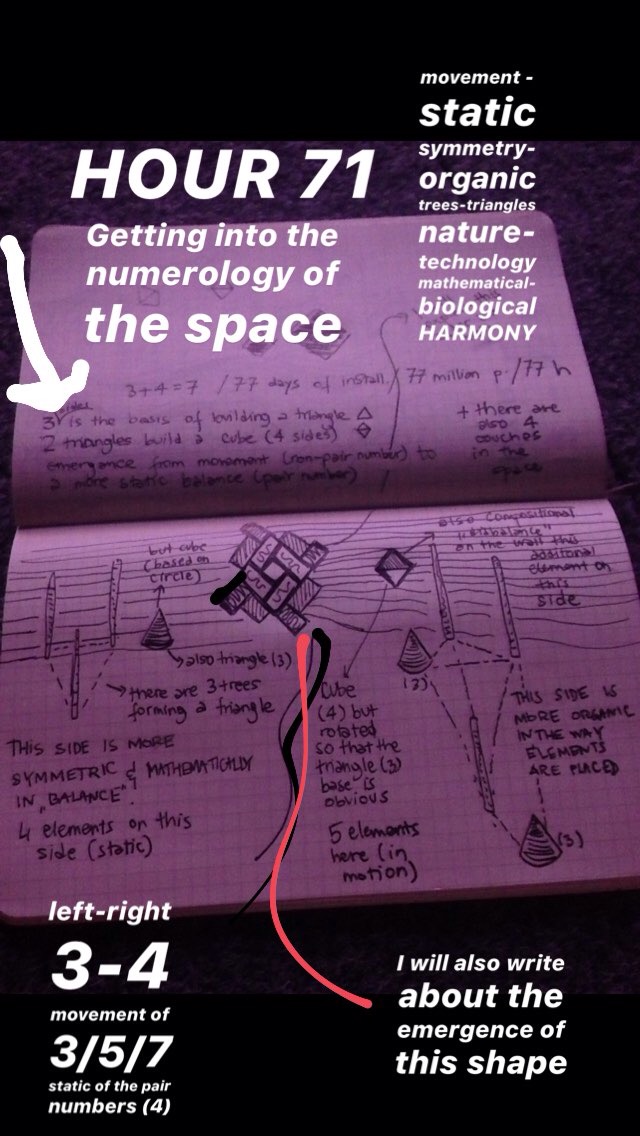 movement -
static
symmetry-
organic
trees-triangles
nature-
technology
mathematical-
biological
HARMONY
HOUR 71
Getting into the
numerology of
the space
3+4=7 / 77 days of install. / 77 million p. / 77 h
sides
3 is the basis of building a triangle
2 triangles build a cube (4 sides)
emergance from movement (non-pair number) to
a more static balance (pair number)
+ there are
also 4
couches
in the
space
but cube
(based on
circle)
also triangle (3)
there are 3 trees
forming a triangle
THIS SIDE IS MORE
SYMMETRIC & MATHEMATICALLY
IN „BALANCE"!
4 elements on this
side (static)
Cube
(4) but
rotated
so that the
triangle (3)
base is
obvious
5 elements
here (in
motion)
also compositional
on the wall this
additional
element on
this
side
(3)
THIS SIDE IS
MORE ORGANIC
IN THE WAY
ELEMENTS
ARE PLACED
(3)
left-right
3-4
movement of
3/5/7
static of the pair
numbers (4)
I will also write
about the
emergence of
this shape